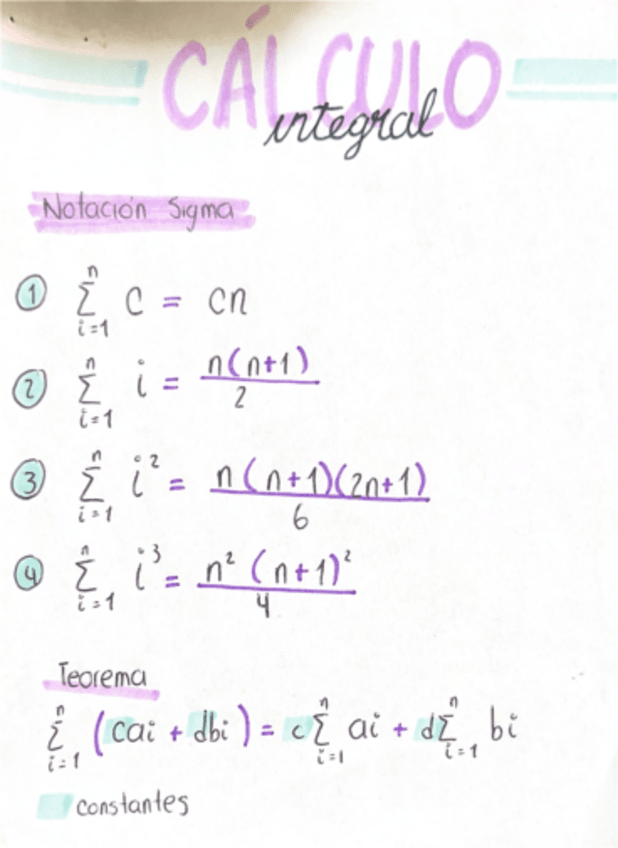 CÁLCULO
integral
Notación Sigma
① n∑i=1 c = cn
② n∑i=1 i = n(n+1)/2
③ n∑i=1 i² = n(n+1)(2n+1)/6
④ n∑i=1 i³ = n²(n+1)²/4
Teorema
n∑i=1 (cai + dbi) = c n∑i=1 ai + d n∑i=1 bi
constantes